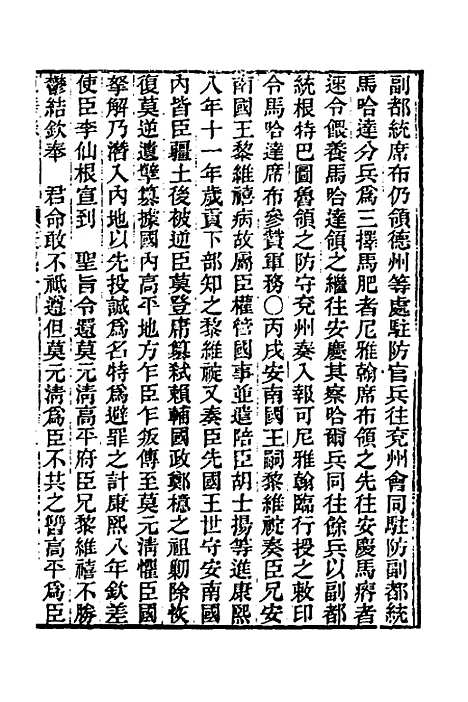 副都統席布仍領德州等處駐防官兵往兗州會同駐防副都統
馬哈達分兵爲三擇馬肥者尼雅翰席布領之先往安慶馬瘠者
速令餵養馬哈達領之繼往安慶其察哈爾兵同往餘兵以副都
統根特巴圖魯領之防守兗州奏入報可尼雅翰臨行授之敕印
令馬哈達席布參贊軍務〇丙戌安南國王嗣黎維禎奏臣兄安
南國王黎維禧病故屬臣權管國事並遣陪臣胡士揚等進康熙
八年十一年歲貢下部知之黎維禎又奏臣先國王世守安南國
內皆臣疆土後被逆臣莫登庸篡弒賴輔國政鄭檍之祖勦除恢
復莫逆遺孽篡據國內高平地方乍臣乍叛傳至莫元淸懼臣國
拏解乃潛入內地以先投誠爲名特爲避罪之計康熙八年欽差
使臣李仙根宣到　聖旨令還莫元淸高平府臣兄黎維禧不勝
鬱結欽奉　君命敢不祇遵但莫元淸爲臣不共之讐高平爲臣